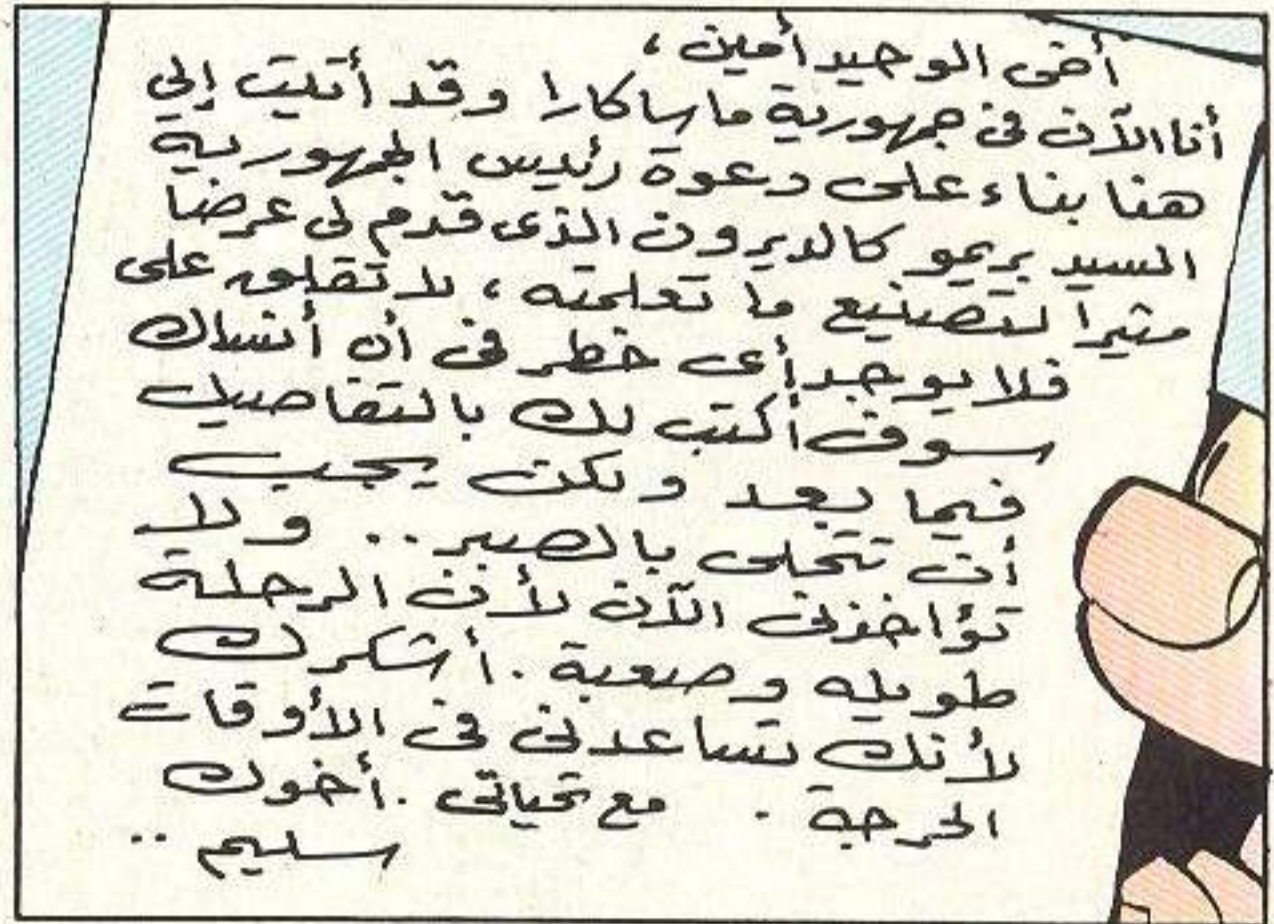 أخى الوحيد أمين،
أنا الآن فى جمهورية ماساكارا وقد أتيت إلى
هنا بناء على دعوة رئيس الجمهورية
السيد بريمو كالديرون الذى قدم لى عرضا
مثيرا لتصنيع ما تعلمته، لا تقلق على
فلا يوجد أى خطر فى أن أنساك
سوف أكتب لك بالتفاصيل
فيما بعد ولكن يجب
أن تتحلى بالصبر.. ولا
تؤاخذنى الآن لأن الرحلة
طويله وصعبة. أشكرك
لأنك تساعدنى فى الأوقات
الحرجة. مع تحياتى. أخوك
سليم..